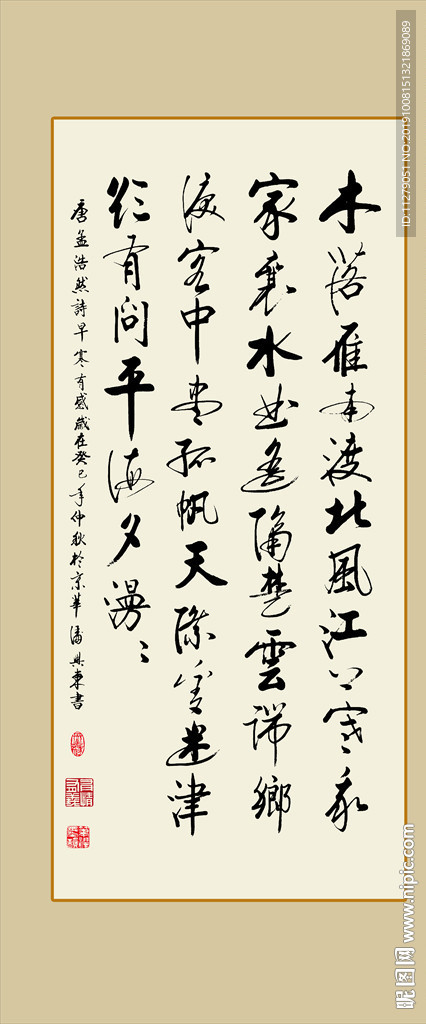 木落雁南渡北風江上寒我
家襄水曲遙隔楚雲端鄉
淚客中盡孤帆天際看迷津
欲有問平海夕漫〻
唐孟浩然詩早寒有感歲在癸巳年仲秋於京華潘興東書
ID:11279051 NO:20191008151321869089
昵图网 www.nipic.com